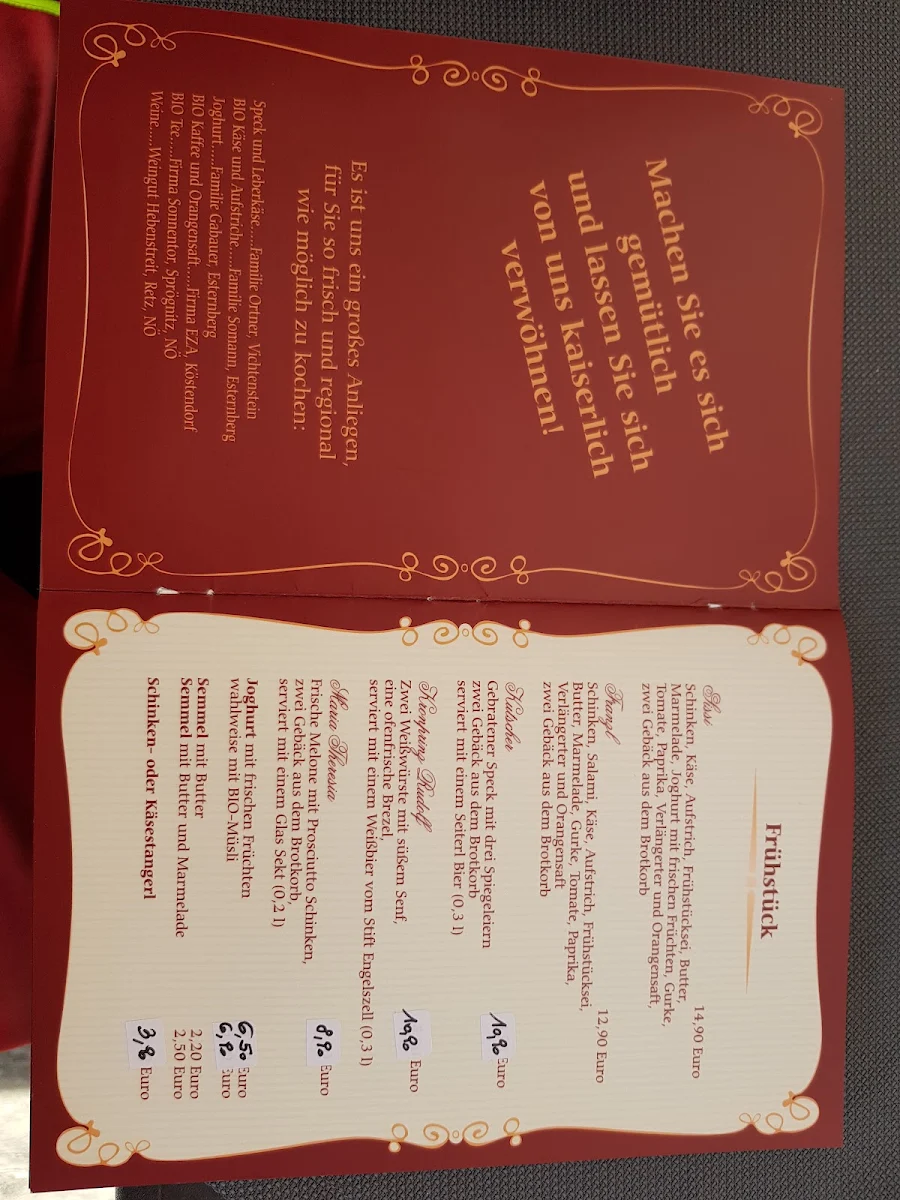 Machen Sie es sich
gemütlich
und lassen Sie sich
von uns kaiserlich
verwöhnen!
Es ist uns ein großes Anliegen,
für Sie so frisch und regional
wie möglich zu kochen:
Speck und Leberkäse.....Familie Ortner, Vichtenstein
BIO Käse und Aufstriche.....Familie Somann, Esternberg
Joghurt.....Familie Gabauer, Esternberg
BIO Kaffee und Orangensaft.....Firma EZA, Köstendorf
BIO Tee.....Firma Sonnentor, Sprögnitz, NÖ
Weine.....Weingut Hebenstreit, Retz, NÖ
Frühstück
Sissi 14,90 Euro
Schinken, Käse, Aufstrich, Frühstücksei, Butter,
Marmelade, Joghurt mit frischen Früchten, Gurke,
Tomate, Paprika, Verlängerter und Orangensaft,
zwei Gebäck aus dem Brotkorb
Franzl 12,90 Euro
Schinken, Salami, Käse, Aufstrich, Frühstücksei,
Butter, Marmelade, Gurke, Tomate, Paprika,
Verlängerter und Orangensaft
zwei Gebäck aus dem Brotkorb
Kutscher 10,90 Euro
Gebratener Speck mit drei Spiegeleiern
zwei Gebäck aus dem Brotkorb
serviert mit einem Seiterl Bier (0,3 l)
Kronprinz Rudolf 10,90 Euro
Zwei Weißwürste mit süßem Senf,
eine ofenfrische Brezel,
serviert mit einem Weißbier vom Stift Engelszell (0,3 l)
Maria Theresia 8,90 Euro
Frische Melone mit Prosciutto Schinken,
zwei Gebäck aus dem Brotkorb,
serviert mit einem Glas Sekt (0,2 l)
Joghurt mit frischen Früchten 6,50 Euro
wahlweise mit BIO-Müsli 6,90 Euro
Semmel mit Butter 2,20 Euro
Semmel mit Butter und Marmelade 2,50 Euro
Schinken- oder Käsestangerl 3,90 Euro